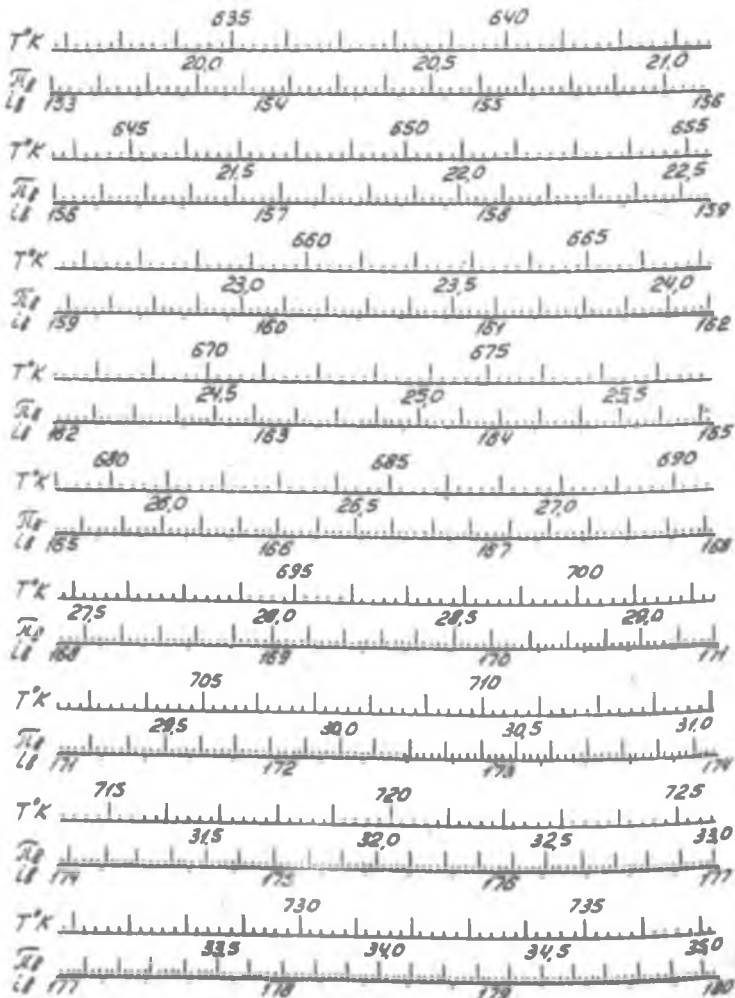 635 640
T°K
20,0 20,5 21,0
πв
iв 153 154 155 156
645 650 655
T°K
21,5 22,0 22,5
πв
iв 156 157 158 159
660 665
T°K
23,0 23,5 24,0
πв
iв 159 160 161 162
670 675
T°K
24,5 25,0 25,5
πв
iв 162 163 164 165
680 685 690
T°K
26,0 26,5 27,0
πв
iв 165 166 167 168
695 700
T°K
27,5 28,0 28,5 29,0
πв
iв 168 169 170 171
705 710
T°K
29,5 30,0 30,5 31,0
πв
iв 171 172 173 174
715 720 725
T°K
31,5 32,0 32,5 33,0
πв
iв 174 175 176 177
730 735
T°K
33,5 34,0 34,5 35,0
πв
iв 177 178 179 180